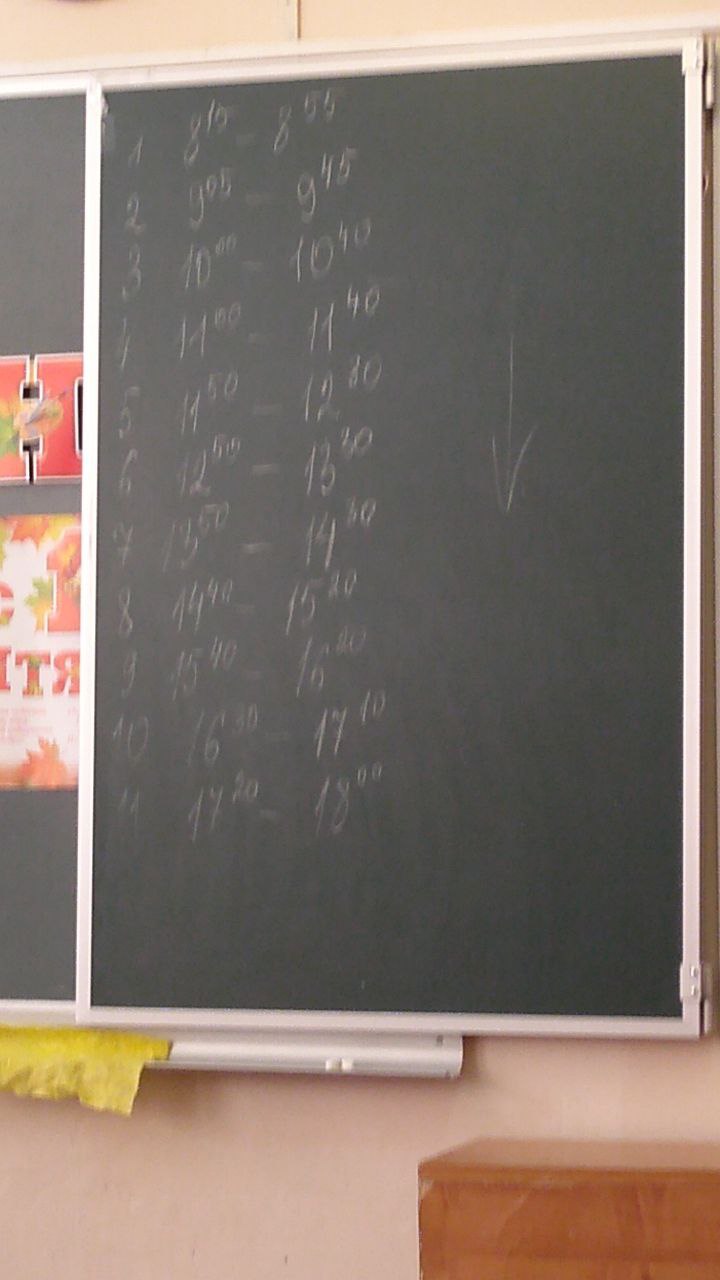 1 8¹⁵ - 8⁵⁵
2 9⁰⁵ - 9⁴⁵
3 10⁰⁰ - 10⁴⁰
4 11⁰⁰ - 11⁴⁰
5 11⁵⁰ - 12³⁰
6 12⁵⁰ - 13³⁰
7 13⁵⁰ - 14³⁰
8 14⁴⁰ - 15²⁰
9 15⁴⁰ - 16²⁰
10 16³⁰ - 17¹⁰
11 17²⁰ - 18⁰⁰